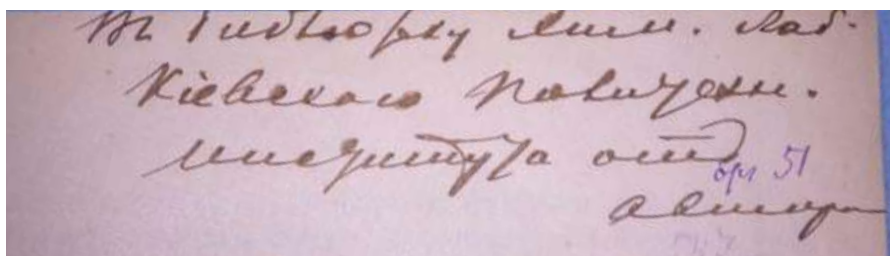 Въ Библіотеку Хим. Лаб.
Кіевскаго Политехн.
Института отъ
орг 51
автора